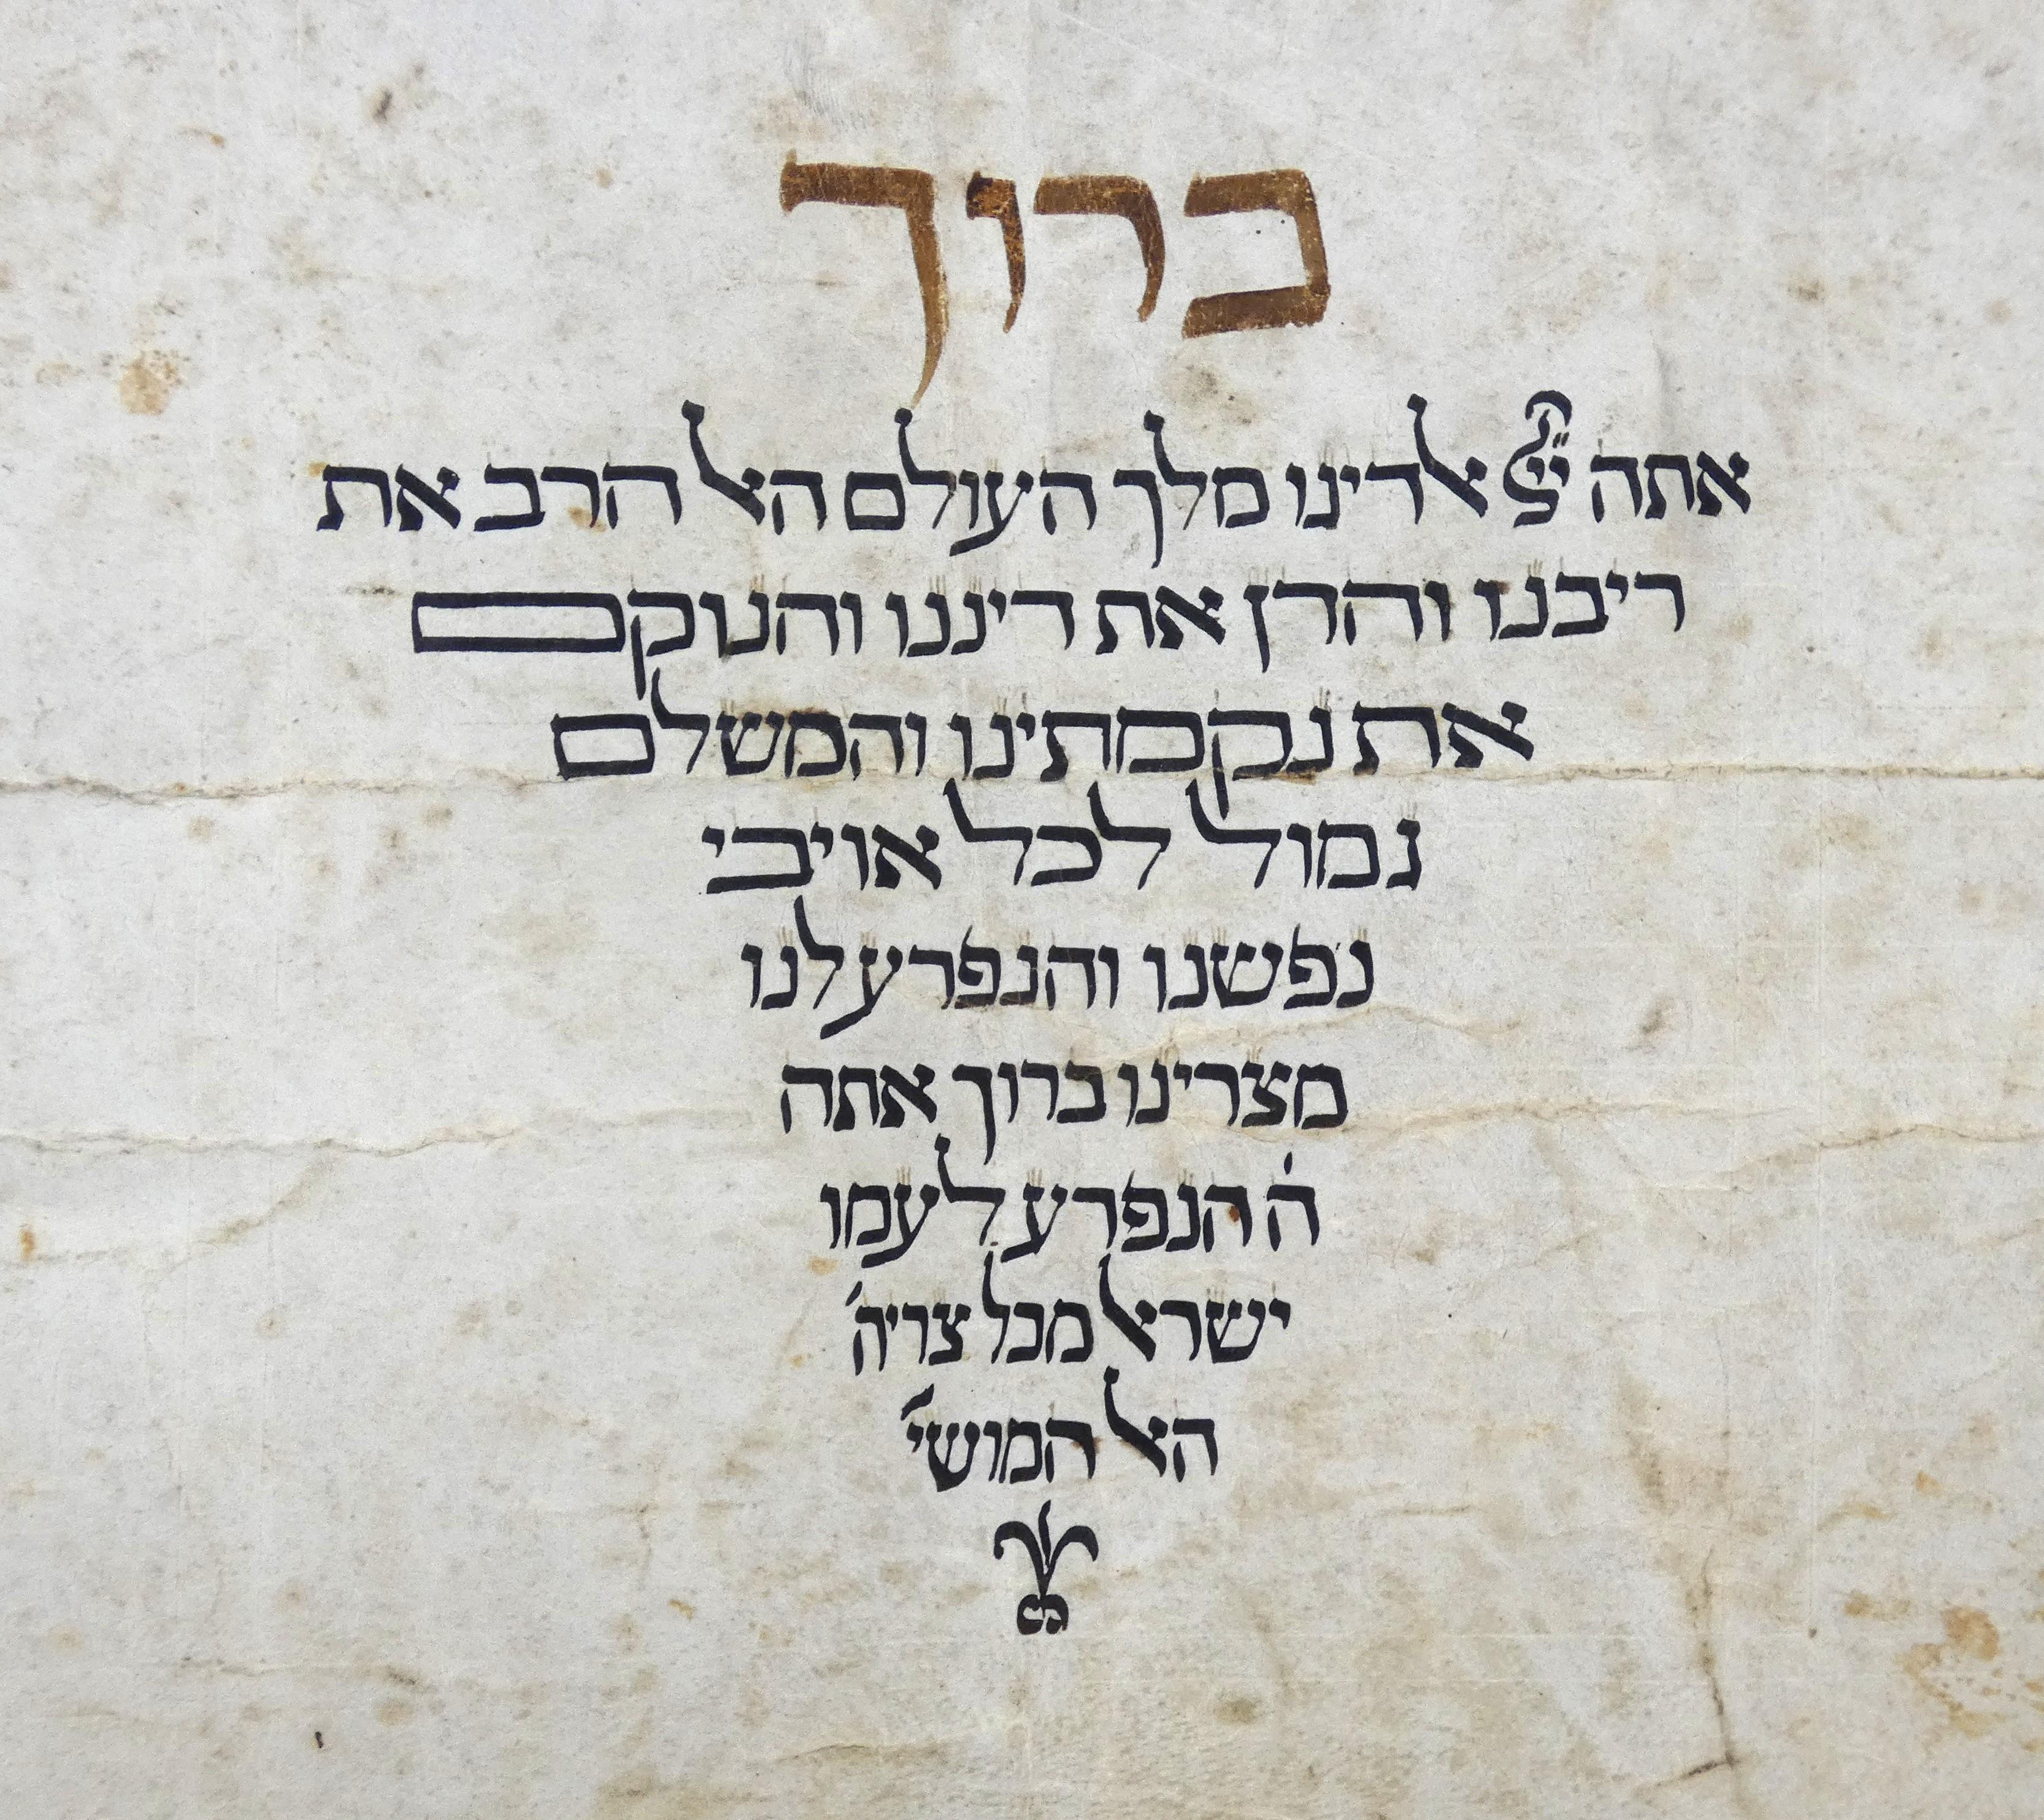 ברוך
אתה ייי אלדינו מלך העולם האל הרב את
ריבנו והדן את דיננו והנוקם
את נקמתינו והמשלם
גמול לכל אויבי
נפשנו והנפרע לנו
מצרינו ברוך אתה
ה׳ הנפרע לעמו
ישראל מכל צריה׳
האל המושי׳